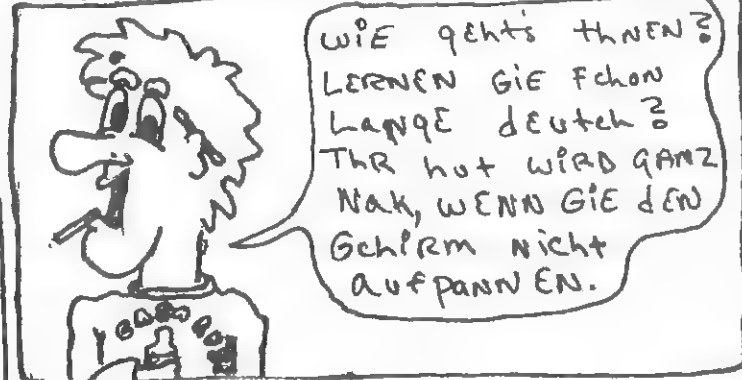 WiE gEhts thNEN?
LERNEN GiE Fchon
LaNgE dEutch?
ThR hut wiRD gANZ
Nak, wENN GiE dEN
GchiRm Nicht
aufpaNNEN.